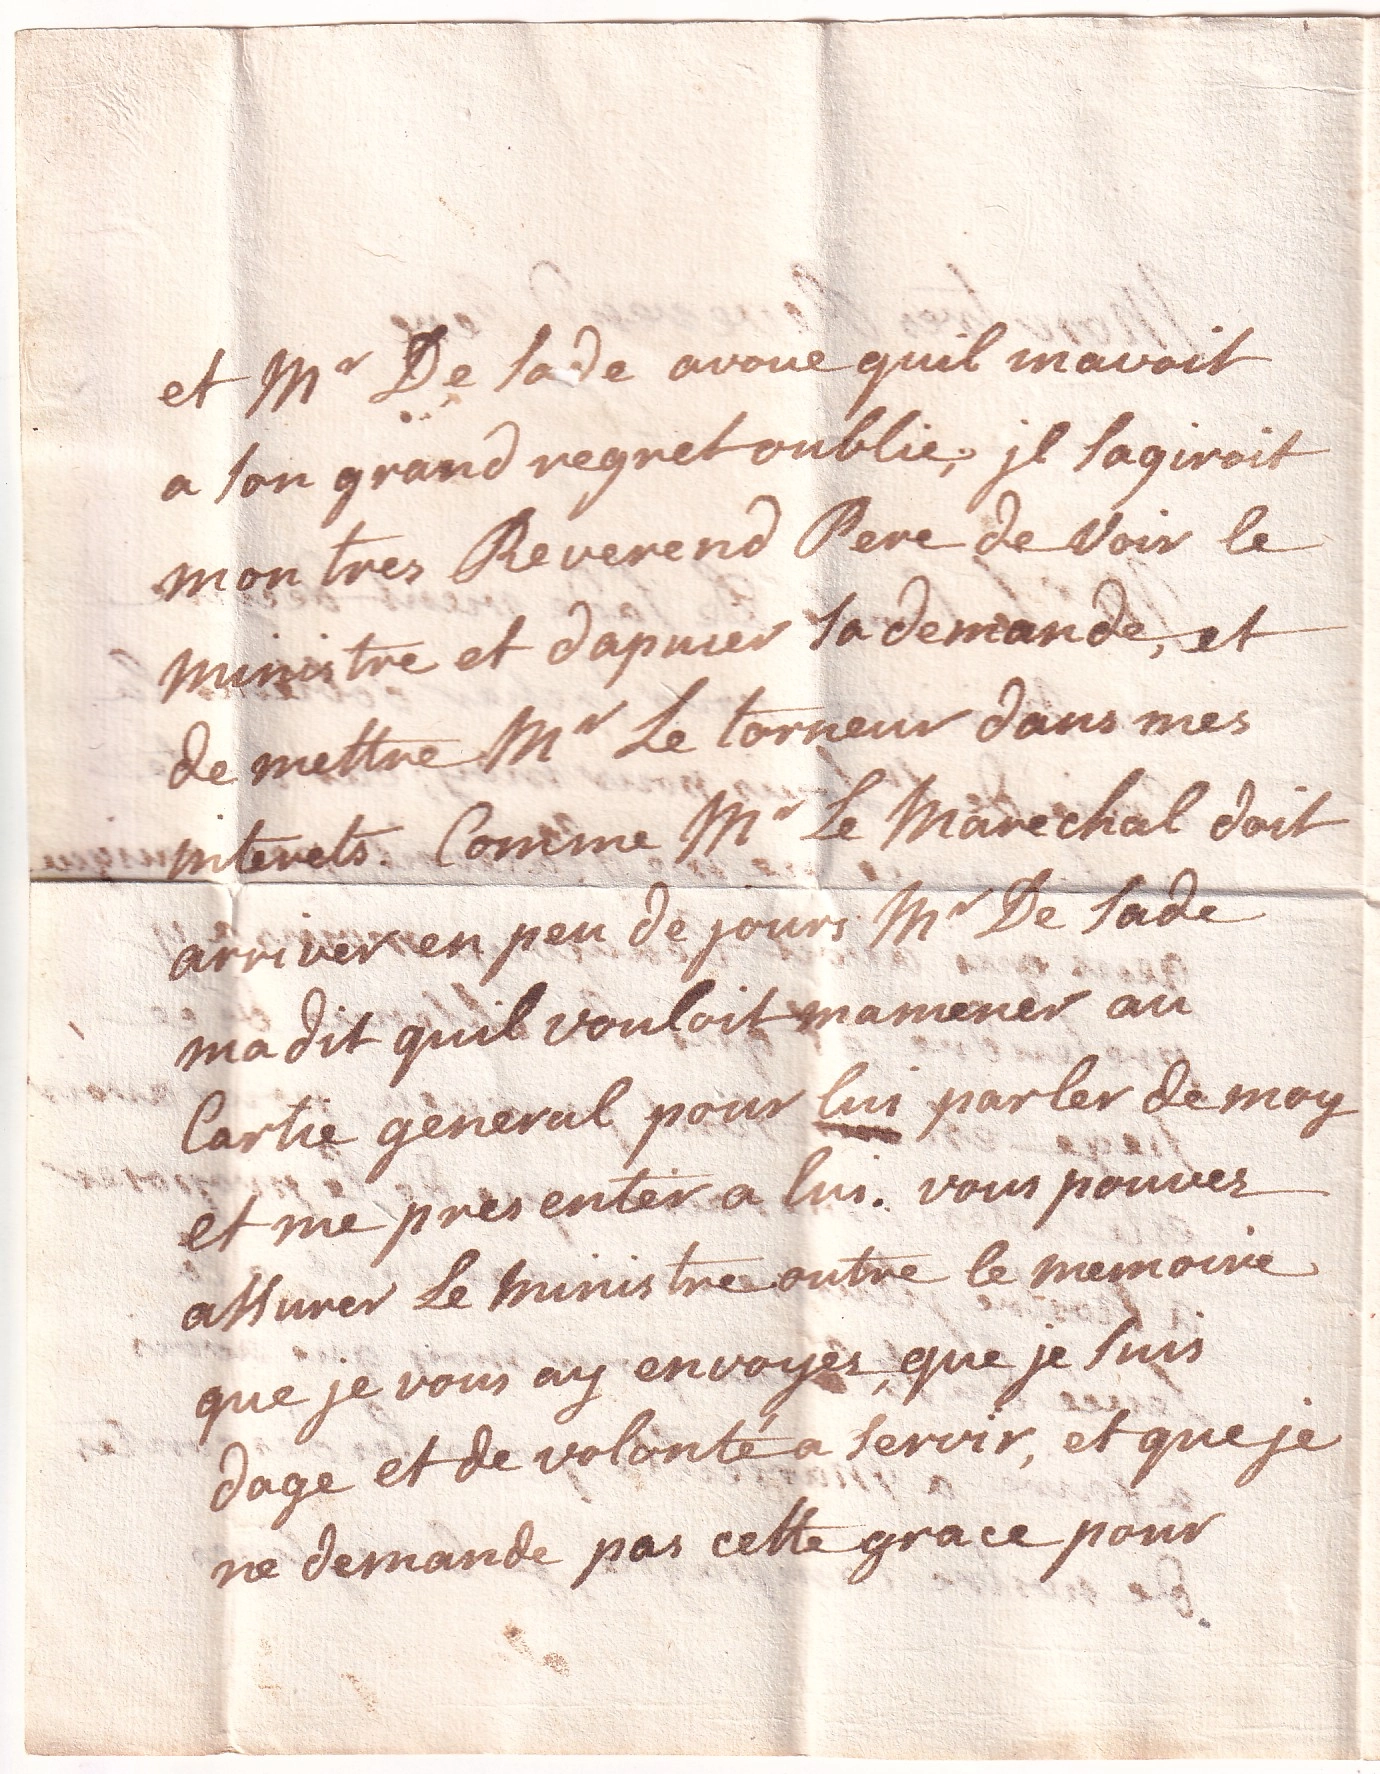 et Mr De Sade avoue quil mavoit
a son grand regret oublie, jl sagiroit
mon tres Reverend Pere de Voir le
ministre et dapuier sa demande, et
de mettre Mr Le torneur dans mes
jnterets. Comme Mr Le Marechal doit
arriver en peu de jours Mr De Sade
ma dit quil vouloit mamener au
Cartie general pour lui parler de moy
et me presenter a lui. vous pouves
assurer Le Ministre outre le memoire
que je vous ay envoyes, que je suis
dage et de volonté a servir, et que je
ne demande pas cette grace pour